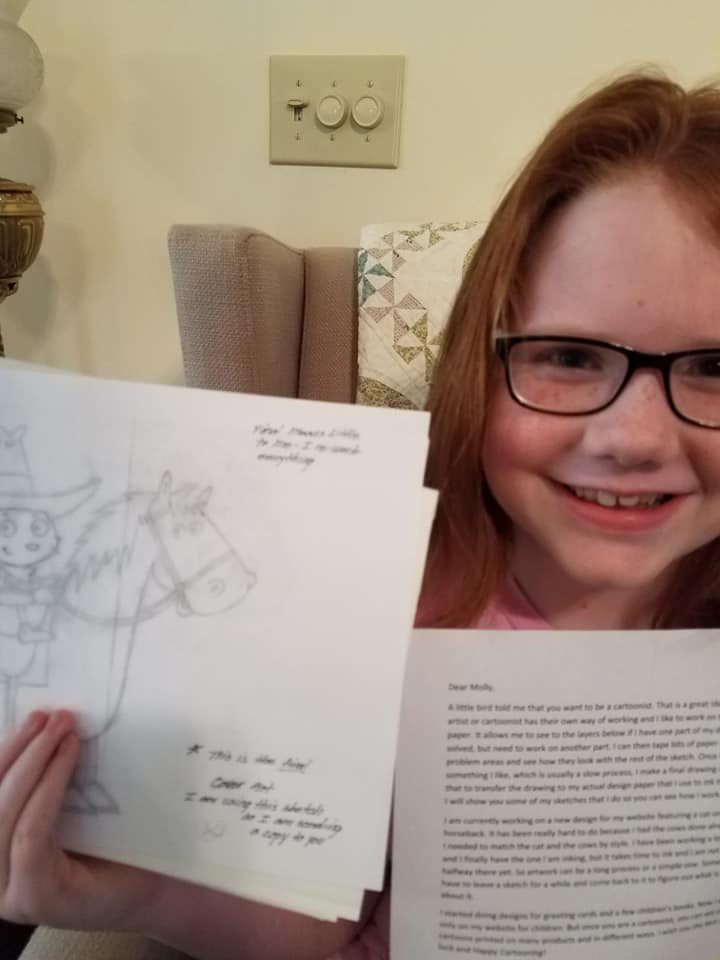 to You - I re-work
everything
* This is the final
Cover Art
I am using this sketch
so I am sending
a copy to you
Dear Molly,
A little bird told me that you want to be a cartoonist. That is a great
artist or cartoonist has their own way of working and I like to work on
paper. It allows me to see to the layers below if I have one part of my
solved, but need to work on another part. I can then tape lots of paper
problem areas and see how they look with the rest of the sketch. Once
something I like, which is usually a slow process, I make a final drawing
that to transfer the drawing to my actual design paper that I use to ink
I will show you some of my sketches that I do so you can see how I work
I am currently working on a new design for my website featuring a cat
horseback. It has been really hard to do because I had the cows done
I needed to match the cat and the cows by style. I have been working a
and I finally have the one I am inking, but it takes time to ink and I am not
halfway there yet. So artwork can be a long process or a simple one.
have to leave a sketch for a while and come back to it to figure out what is
about it.
I started doing designs for greeting cards and a few children's books. Now
only on my website for children. But once you are a cartoonist, you can
cartoons printed on many products and in different ways. I wish you
luck and Happy Cartooning!